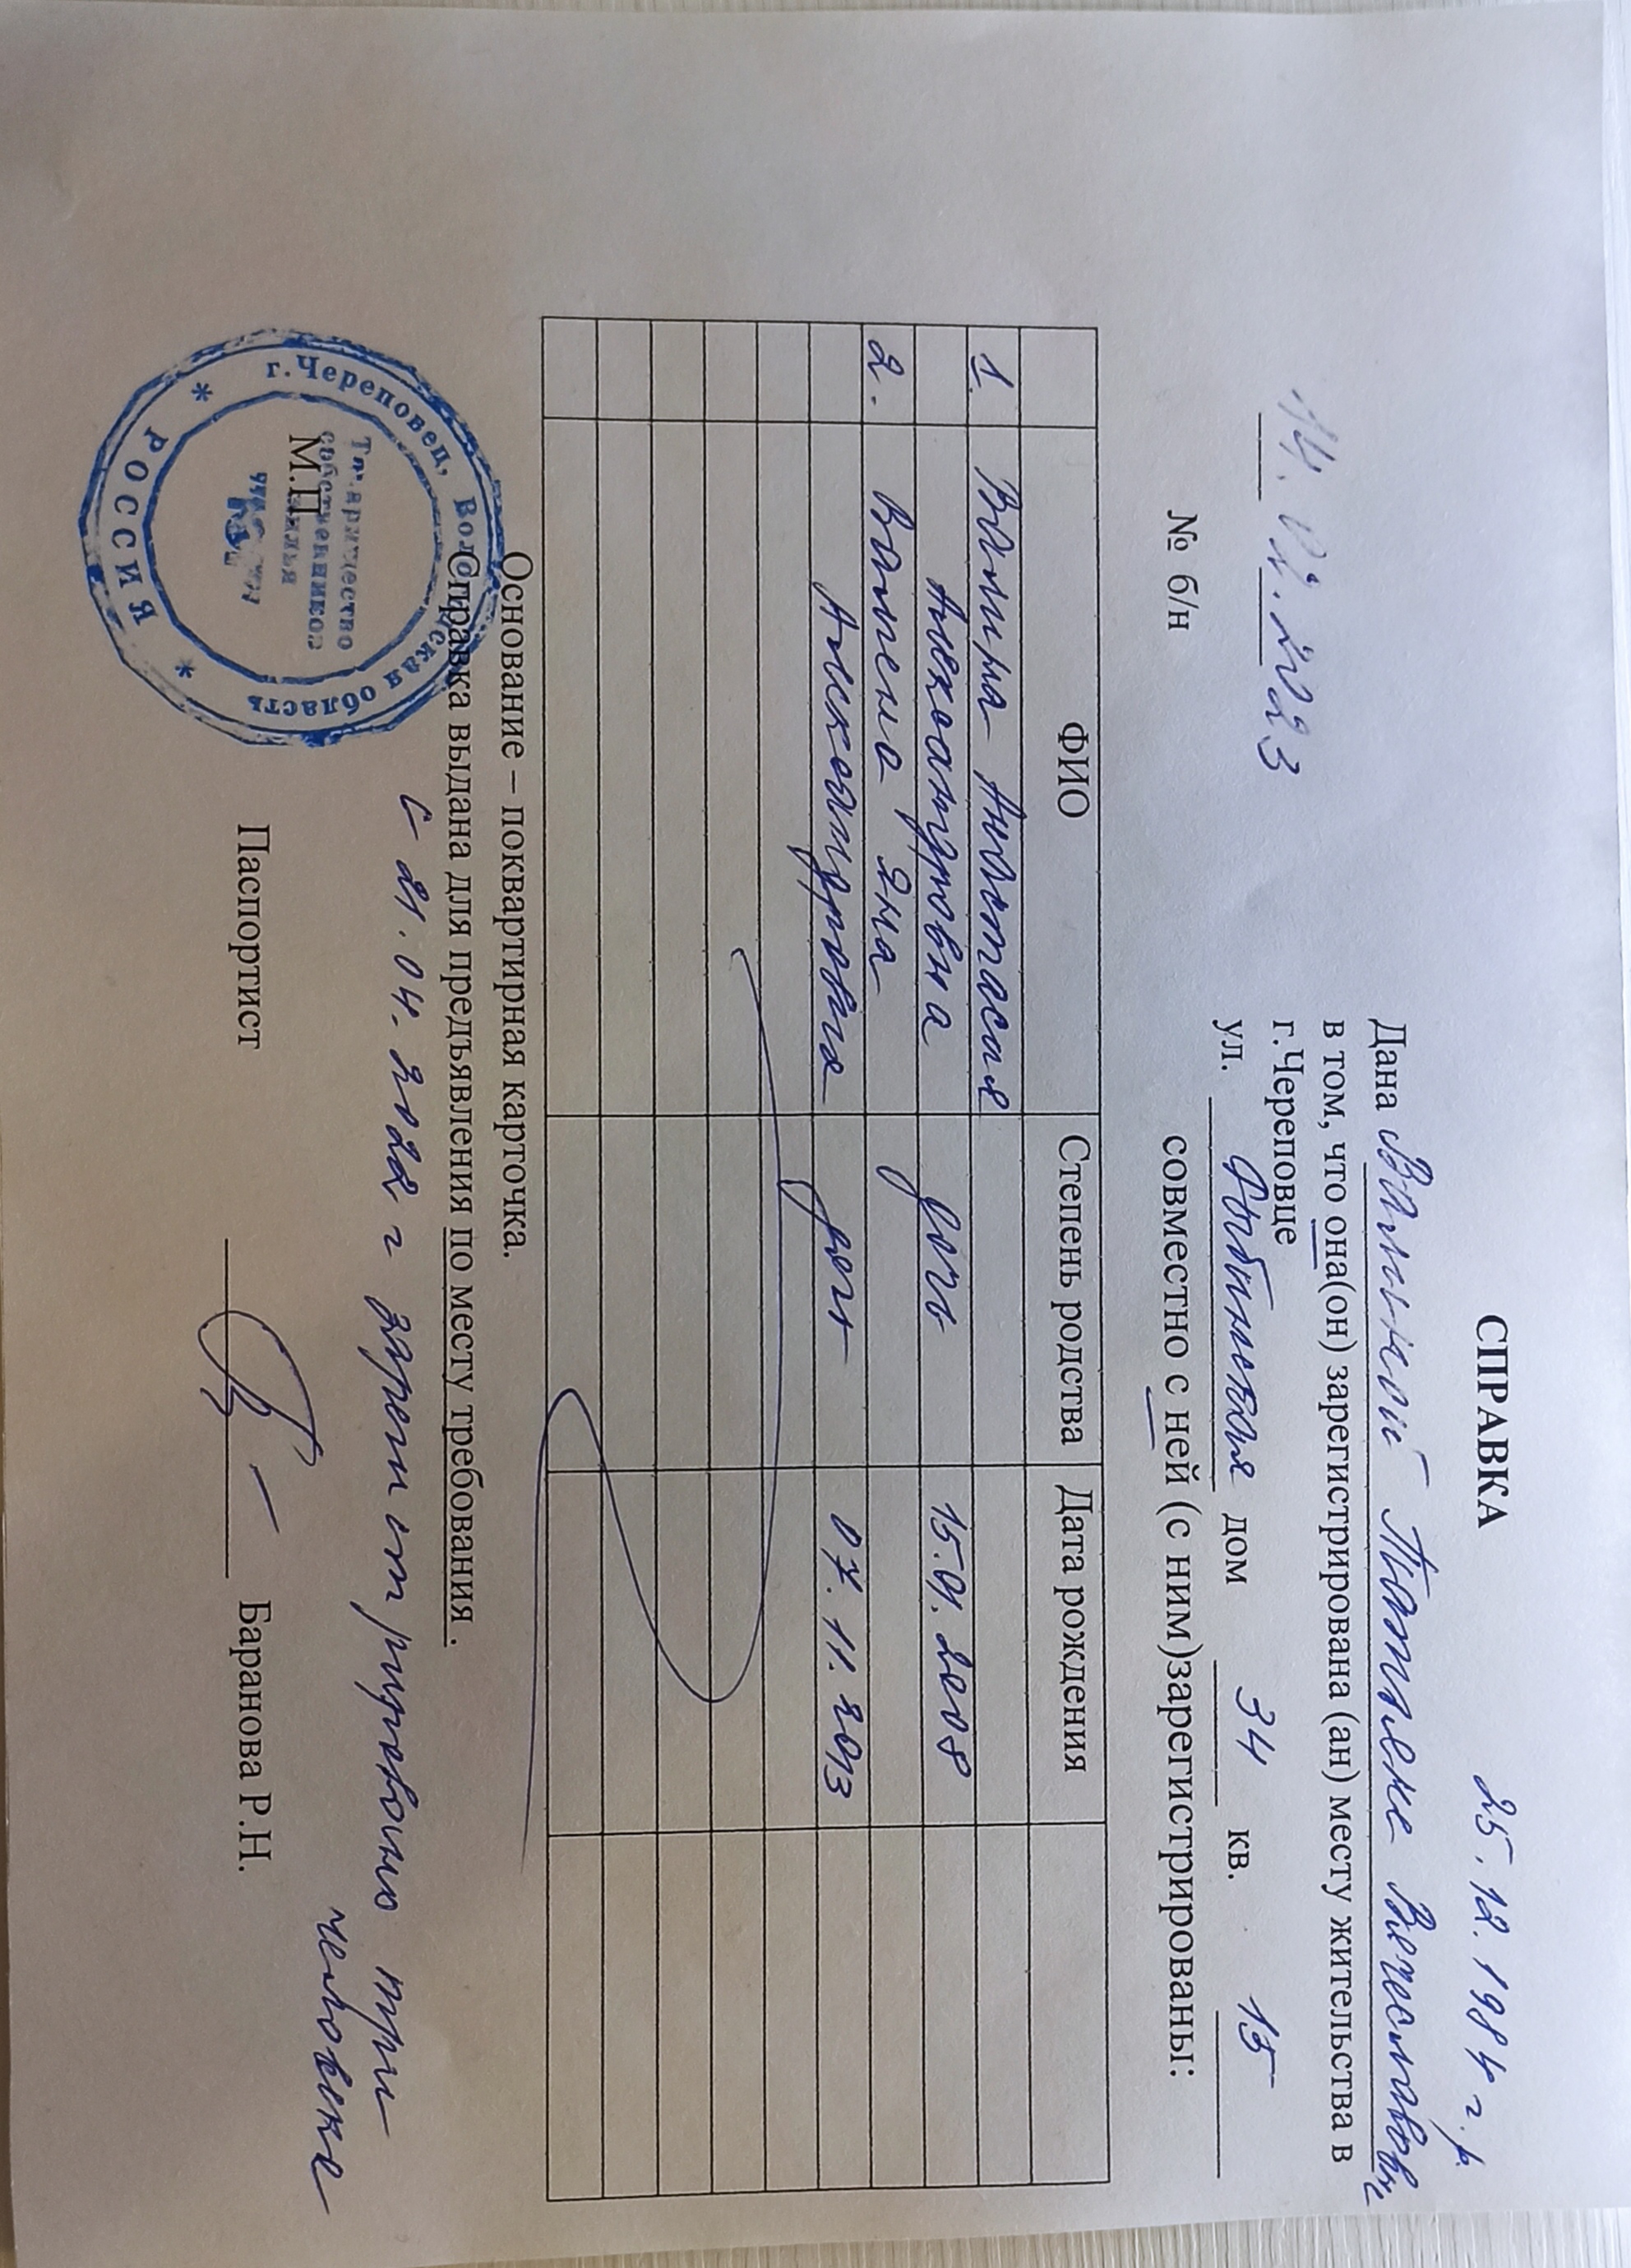 СПРАВКА
25.12.1984 г.р.
14.02.2023
Дана Валиной Татьяне Вячеславовне
в том, что она(он) зарегистрирована (ан) месту жительства в
г.Череповце
ул. дом 34 кв. 15
№ б/н
совместно с ней (с ним)зарегистрированы:
ФИО Степень родства Дата рождения
1. Валина Анастасия
Александровна дочь 15.01.2008
2. Валина Яна
Александровна дочь 07.11.2013
Основание – поквартирная карточка.
Справка выдана для предъявления по месту требования .
с 21.04.2022 г зарегистрировано три
человека
М.П
Паспортист Баранова Р.Н.
г.Череповец, Вологодская область
* РОССИЯ *
Товарищество
собственников
жилья